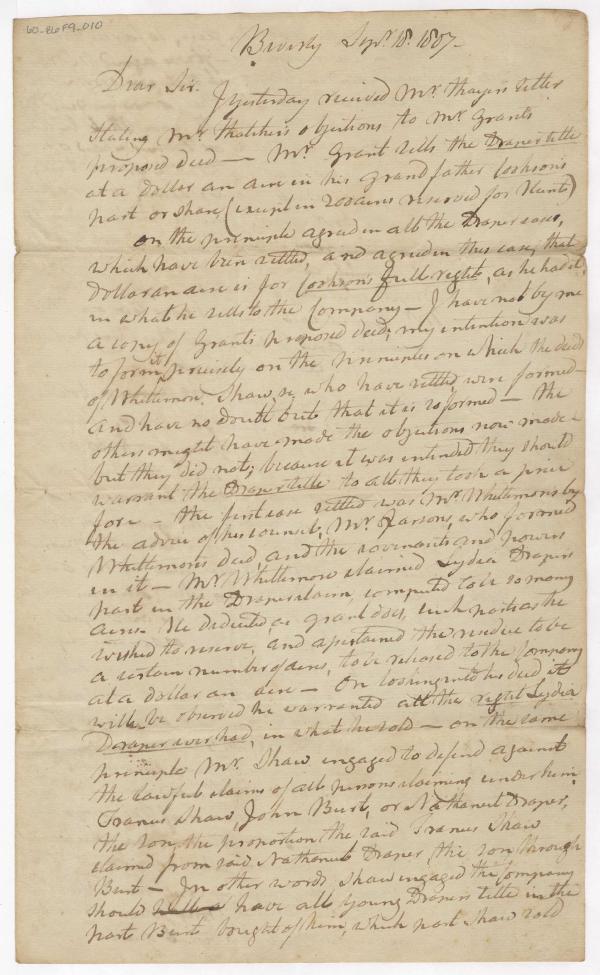 60-B6F9-010
Beverly Sepr. 18. 1807-
Dear Sir. I yesterday received Mr. Thayers letter
stating Mr. Thatchers objections to Mr. Grants
proposed deed — Mr. Grant sells the Draper title
at a dollar an acre in his grandfather Cookson's
part or share, (except in 200 acres reserved for Hunt)
on the principle agreed in all the Draper cases,
which have been settled, and agreed in this case, that
dollar an acre is for Cookson's full right, as he had it,
in what he sells to the Company — I have not by me
a copy of Grants proposed deed; my intention was
to form it precisely on the principles on which the deeds
of Whittemore, Shaw, &c who have settled, were formed —
and have no doubt but that it is so formed — the
others might have made the objections now made -
but they did not; because it was intended they should
warrant the Draper title to all they took a price
for - the first case settled was Mr. Whittemores by
the advice of his counsel, Mr. Parsons, who formed
Whittemore's deed, and the covenants and powers
in it — Mr. Whittemore claimed Lydia Drapers
part in the Draper claim, computed to be so many
acres. He deducted, as grant does, such parts as he
wished to reserve, and ascertained the residue to be
a certain number of acres, to be released to the Company
at a dollar an acre — On looking into his deed it
will be observed he warranted all the right Lydia
Draper ever had, in what he sold — on the same
principle Mr. Shaw engaged to defend against
the lawful claims of all persons claiming under him
Francis Shaw, John Burt, or Nathaniel Draper,
the son, the proportion the said Francis Shaw
claimed from said Nathaniel Draper, the son through
Burt — In other words Shaw engaged the Company
should have all young Drapers title in the
part Burt bought of him, which part Shaw sold